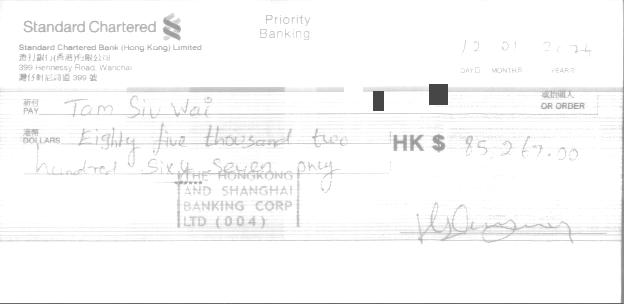 Standard Chartered
Priority
Banking
Standard Chartered Bank (Hong Kong) Limited
渣打銀行(香港)有限公司
399 Hennessy Road, Wanchai
灣仔軒尼詩道 399 號
12 01 2024
DAYS MONTHS YEARS
祈付
PAY Tam Siu Wai
或持票人
OR ORDER
港幣
DOLLARS Eighty five thousand two
hundred Sixty Seven only
HK $ 85,267.00
THE HONGKONG
AND SHANGHAI
BANKING CORP
LTD (004)